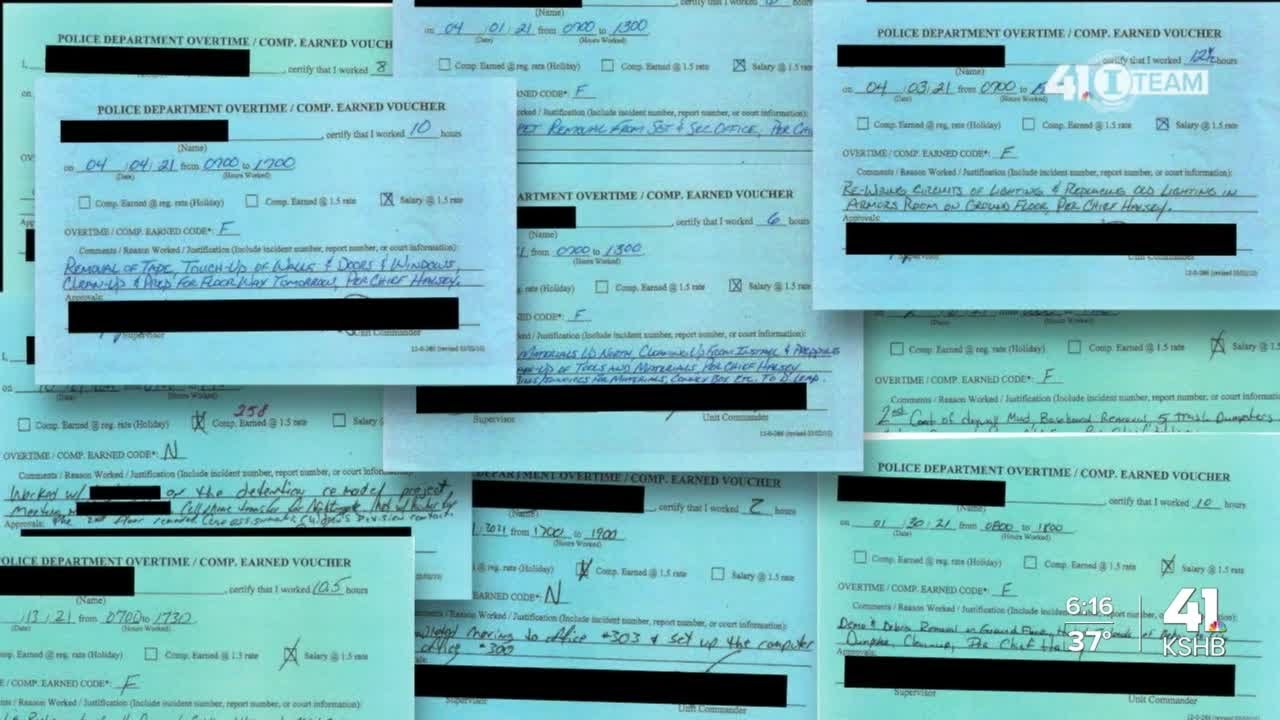 POLICE DEPARTMENT OVERTIME / COMP. EARNED VOUCH
I,
, certify that I worked 8
on
POLICE DEPARTMENT OVERTIME / COMP. EARNED VOUCHER
, certify that I worked 10 hours
(Name)
on 04 / 04 / 21 from 0700 to 1700
(Date) (Hours Worked)
Comp. Earned @ reg. rate (Holiday) Comp. Earned @ 1.5 rate Salary @ 1.5 rate
OVERTIME / COMP. EARNED CODE*: F
Comments / Reason Worked / Justification (Include incident number, report number, or court information):
REMOVAL OF TAPE, TOUCH-UP OF WALLS & DOORS & WINDOWS,
CLEAN-UP & PREP FOR FLOOR WAX TOMORROW, PER CHIEF HALSEY.
Approvals:
Supervisor Unit Commander
(Name)
on 04 / 01 / 21 from 0700 to 1300
(Date) (Hours Worked)
Comp. Earned @ reg. rate (Holiday) Comp. Earned @ 1.5 rate Salary @ 1.5 rate
NED CODE*: F
REMOVAL FROM SGT & SEC OFFICE, PER
DEPARTMENT OVERTIME / COMP. EARNED VOUCHER
, certify that I worked 6 hours
(Name)
from 0700 to 1300
(Hours Worked)
reg. rate (Holiday) Comp. Earned @ 1.5 rate Salary @ 1.5 rate
NED CODE*: F
/ Justification (Include incident number, report number, or court information):
MATERIALS UP NORTH, CLEANING UP FROM INSTALL &
OF TOOLS AND MATERIALS, PER CHIEF HALSEY
Supervisor Unit Commander
POLICE DEPARTMENT OVERTIME / COMP. EARNED VOUCHER
, certify that I worked 12½ hours
(Name)
on 04 / 03 / 21 from 0700 to
(Date) (Hours Worked)
41 I TEAM
Comp. Earned @ reg. rate (Holiday) Comp. Earned @ 1.5 rate Salary @ 1.5 rate
OVERTIME / COMP. EARNED CODE*: F
Comments / Reason Worked / Justification (Include incident number, report number, or court information):
RE-WIRING CIRCUITS OF LIGHTING & REPLACING OLD LIGHTING IN
ARMORS ROOM ON GROUND FLOOR, PER CHIEF HALSEY.
Approvals:
(Date) (Hours Worked)
Comp. Earned @ reg. rate (Holiday) Comp. Earned @ 1.5 rate Salary @ 1.5
OVERTIME / COMP. EARNED CODE*: F
Comments / Reason Worked / Justification (Include incident number, report number, or court information
2nd Coat of drywall Mud, Baseboard Removal, 5 Trash Dumpsters
258
Comp. Earned @ reg. rate (Holiday) Comp. Earned @ 1.5 rate Salary @
OVERTIME / COMP. EARNED CODE*: N
Comments / Reason Worked / Justification (Include incident number, report number, or court
Worked w/ on the detention remodel project
Approvals:
OLICE DEPARTMENT OVERTIME / COMP. EARNED VOUCHER
, certify that I worked 10.5 hours
(Name)
13 / 21 from 0700 to 1730
(Date) (Hours Worked)
Comp. Earned @ 1.5 rate Salary @ 1.5 rate
E / COMP. EARNED CODE*: F
/ Reason Worked / Justification (Include incident number, report number, or court information):
DEPARTMENT OVERTIME / COMP. EARNED VOUCHER
, certify that I worked 2 hours
(Name)
from 1700 to 1900
(Hours Worked)
reg. rate (Holiday) Comp. Earned @ 1.5 rate Salary @ 1.5 rate
EARNED CODE*: N
Reason Worked / Justification (Include incident number, report number, or court information):
moving to office #303 & set up the computer
office #300
Supervisor Unit Commander
POLICE DEPARTMENT OVERTIME / COMP. EARNED VOUCHER
, certify that I worked 10 hours
(Name)
on 01 / 30 / 21 from 0800 to 1800
(Date) (Hours Worked)
Comp. Earned @ reg. rate (Holiday) Comp. Earned @ 1.5 rate Salary @ 1.5 rate
OVERTIME / COMP. EARNED CODE*: F
Comments / Reason Worked / Justification (Include incident number, report
Demo & Debris Removal on Ground Floor,
Dumpster Cleanup, Per Chief
Approvals:
Supervisor Unit Commander
6:16
37°
41
KSHB